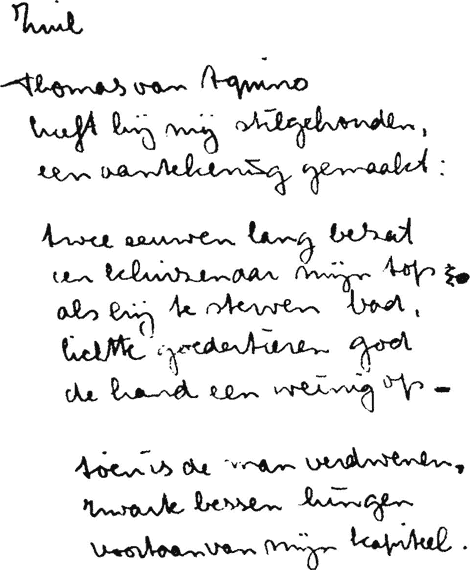 Zuil
Thomas van Aquino
heeft bij mij stilgehouden,
een aantekening gemaakt:
twee eeuwen lang bezat
een kluizenaar mijn top
als hij te sterven bad,
lichtte goedertieren god
de hand een weinig op –
toen is de man verdwenen,
zwarte bessen hingen
voortaan van mijn kapiteel.